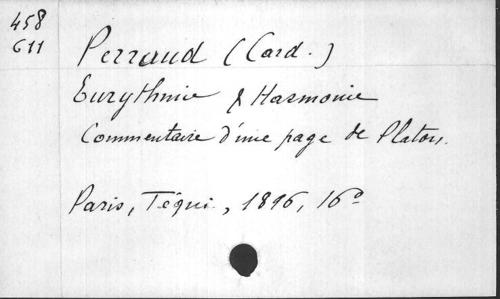 458
G11
Perraud (Card.)
Eurythmie & Harmonie
Commentaire d'une page de Platon.
Paris, Téqui, 1896, 16º